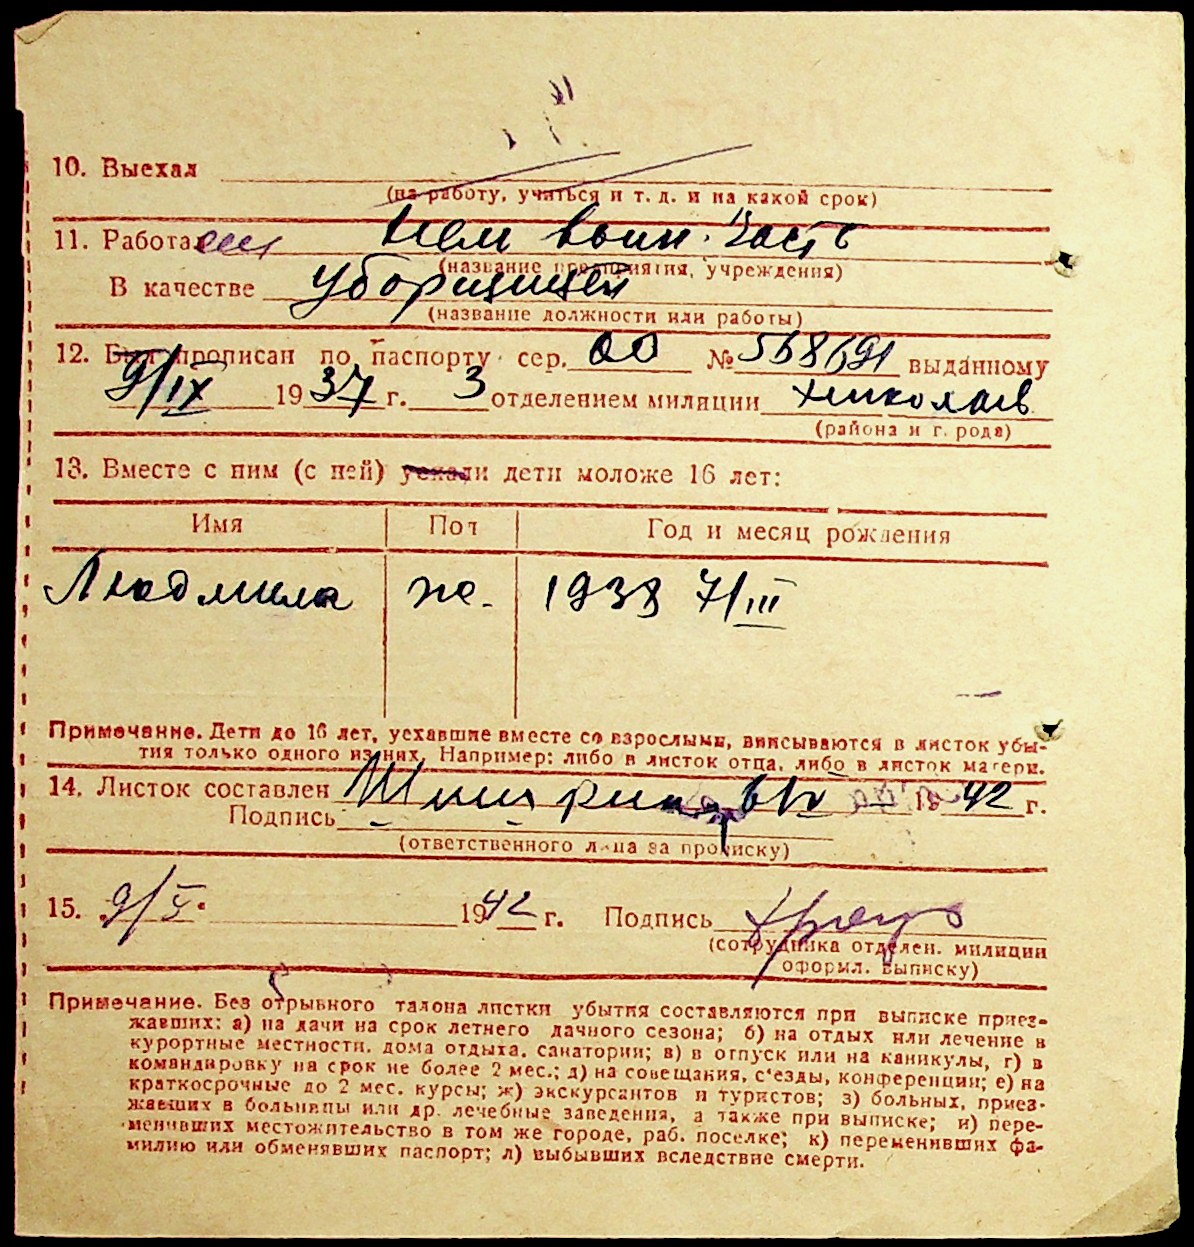 10. Выехал
(на работу, учиться и т. д. и на какой срок)
11. Работа ет Нем воин. часть
(название предприятия, учреждения)
В качестве Уборщицей
(название должности или работы)
12. Был прописан по паспорту сер. ОО № 568691 выданному
9/IX 1937 г. 3 отделением милиции Николаев
(района и г. рода)
13. Вместе с ним (с ней) уехали дети моложе 16 лет:
Имя Пол Год и месяц рождения
Людмила же. 1938 7/III
Примечание. Дети до 16 лет, уехавшие вместе со взрослыми, вписываются в листок убы-
тия только одного из них. Например: либо в листок отца, либо в листок матери.
14. Листок составлен 1942 г.
Подпись
(ответственного лица за прописку)
15. 9/V 1942 г. Подпись
(сотрудника отделен. милиции
оформл. выписку)
Примечание. Без отрывного талона листки убытия составляются при выписке приез-
жавших: а) на дачи на срок летнего дачного сезона; б) на отдых или лечение в
курортные местности, дома отдыха, санатории; в) в отпуск или на каникулы, г) в
командировку на срок не более 2 мес.; д) на совещания, с'езды, конференции; е) на
краткосрочные до 2 мес. курсы; ж) экскурсантов и туристов; з) больных, приез-
жавших в больницы или др. лечебные заведения, а также при выписке; и) пере-
менивших местожительство в том же городе, раб. поселке; к) переменивших фа-
милию или обменявших паспорт; л) выбывших вследствие смерти.